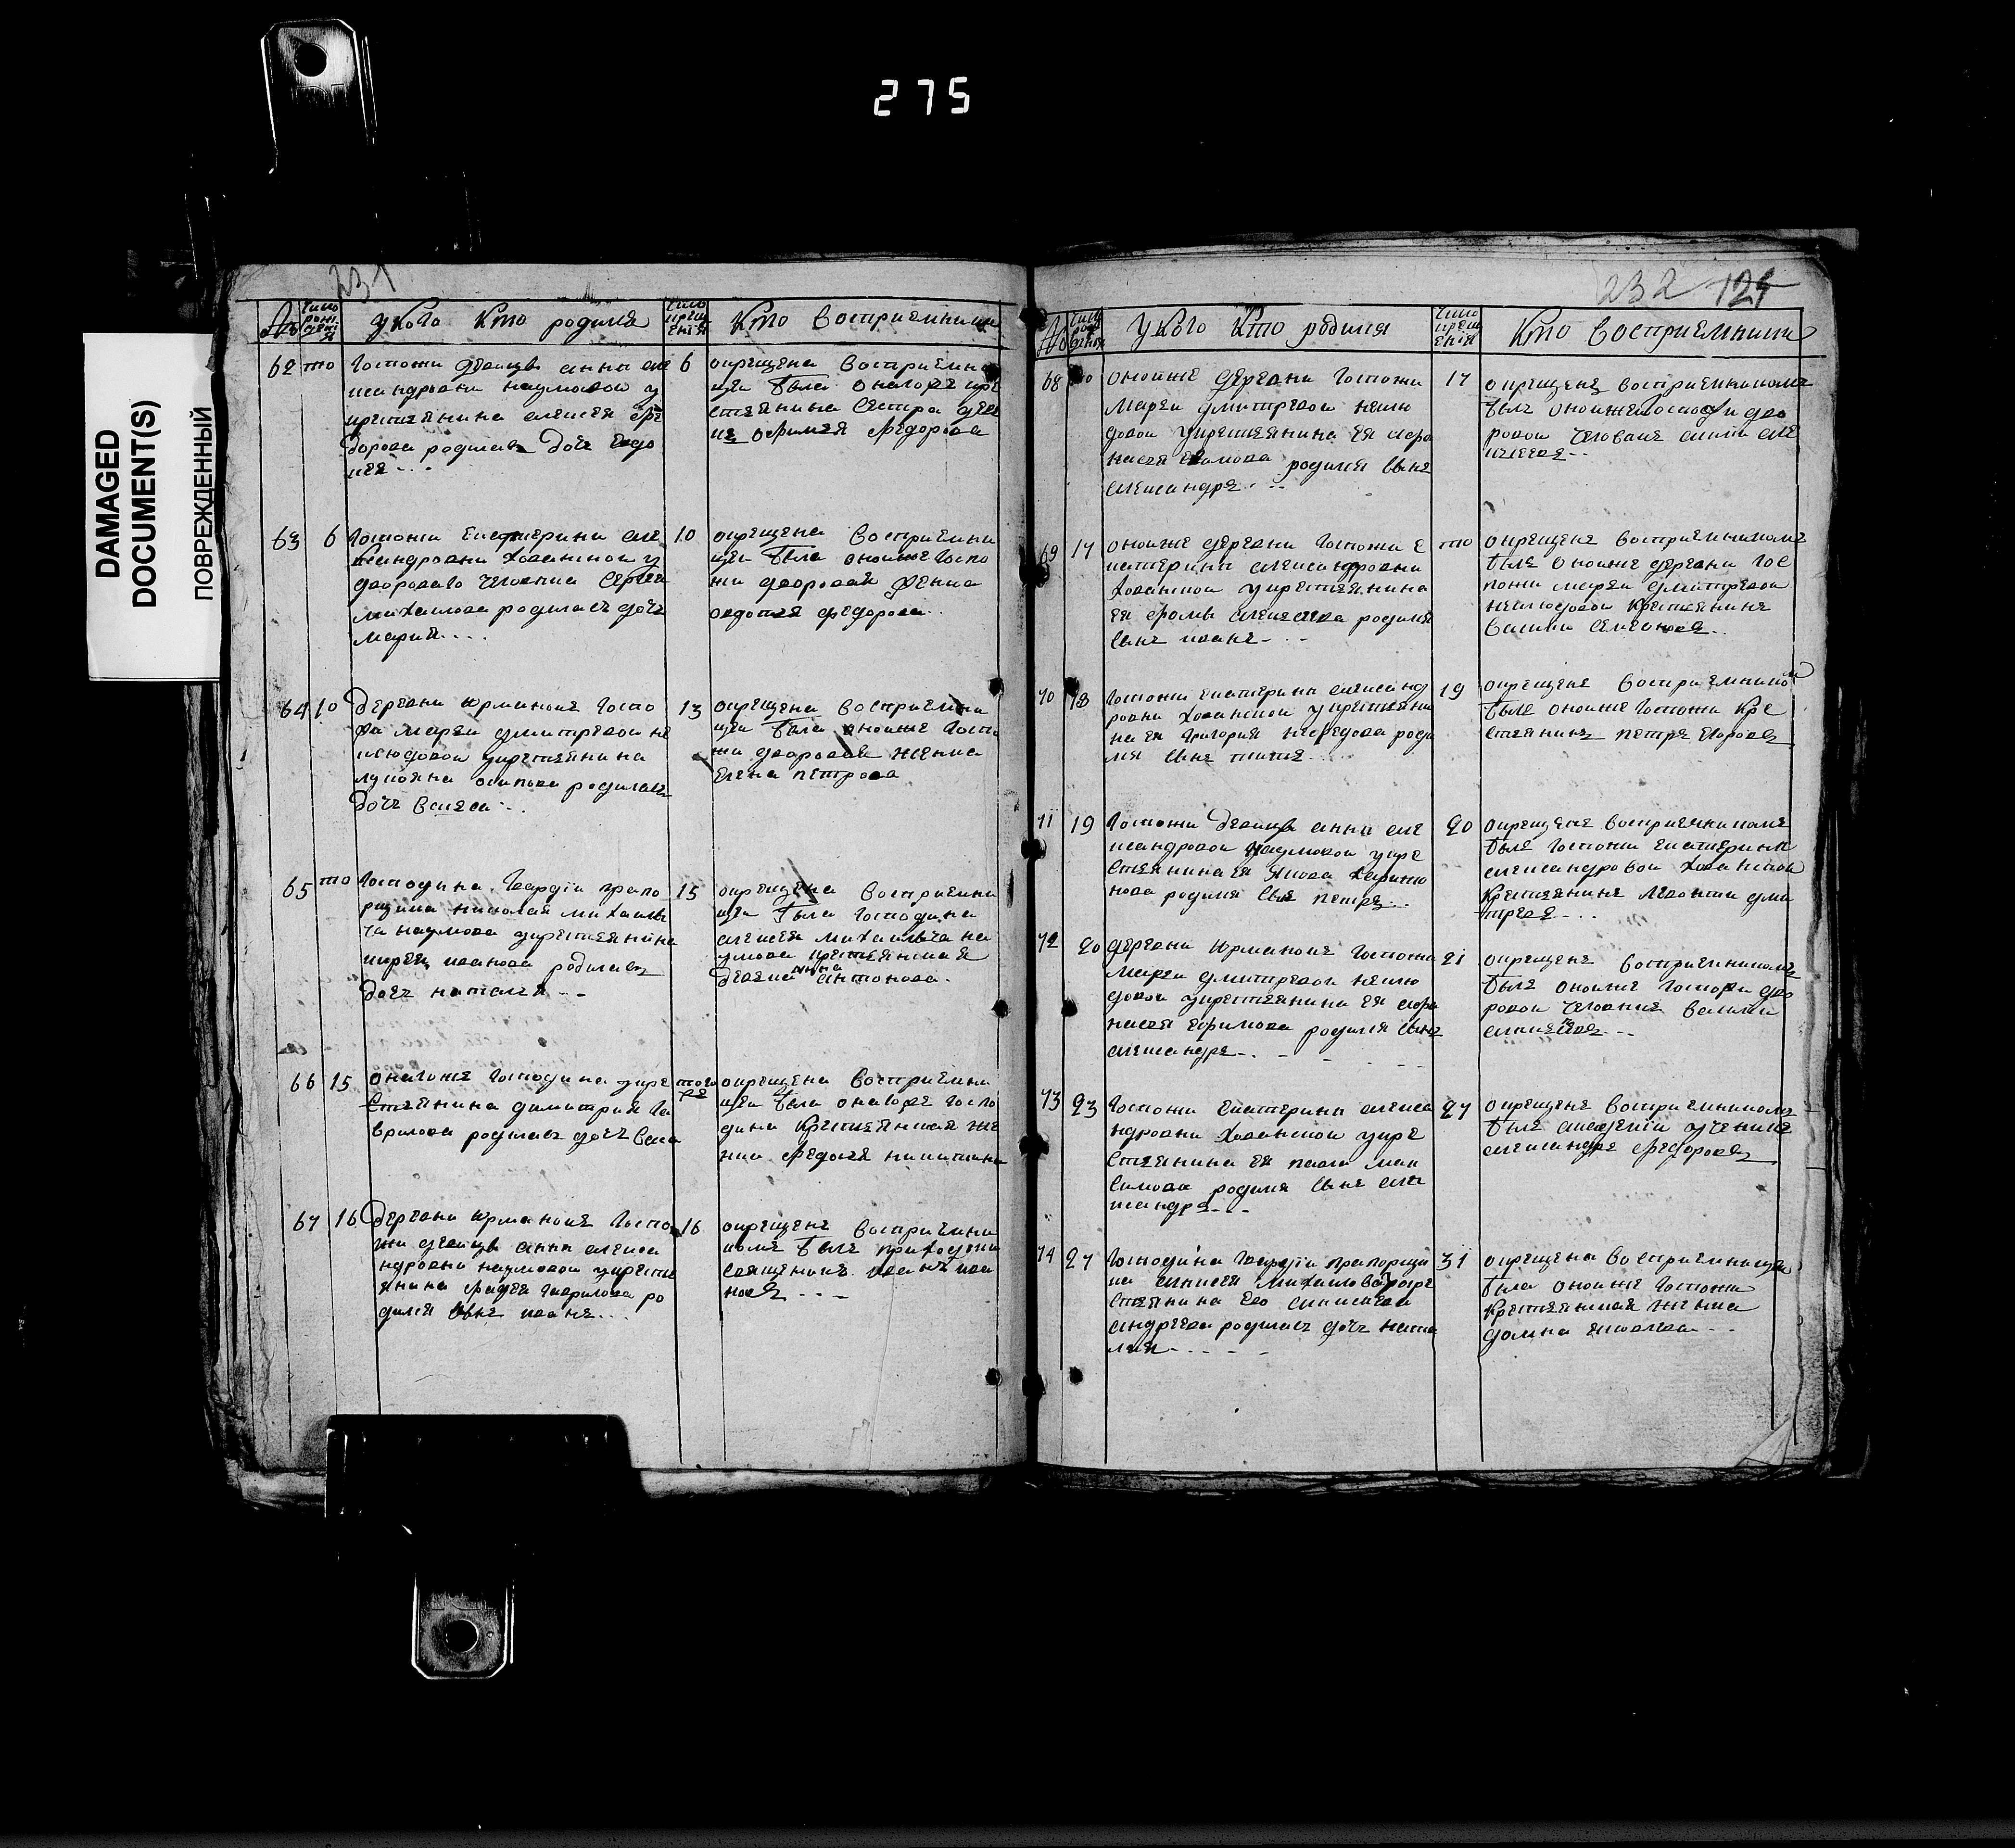 275
DAMAGED
DOCUMENT(S)
ПОВРЕЖДЕННЫЙ
231
№ число рожденія
у кого кто родился
число крещенія
кто восприемники
62 то
госпожи девицы анны але
ксандровны наумовой у
крестьянина алексея фе
дорова родилась дочь евдо
кея
6
окрещена восприемни
цей была онагоже кре
стьянина сестра деви
ца ефимья федорова
63 6
госпожи екатерины але
ксандровны хованской у
двороваго человека сергея
михайлова родилась дочь
марья
10
окрещена восприемни
цей была оной же госпо
жи дворовая женка
авдотья федорова
64 10
деревни юрманокъ госпо
жи марьи дмитревой не
клюдовой у крестьянина
лукояна осипова родилась
дочь васса
13
окрещена восприемни
цей была оной же госпо
жи дворовая женка
елена петрова
65 то
господина гвардіи прапо
рщика николая михайлы
ча наумова у крестьянина
кирея иванова родилась
дочь наталья
15
окрещена восприемни
цей была господина
алексея михайлыча на
умова крестьянская
девка анна антонова
66 15
онагоже господина у кре
стьянина димитрия га
врилова родилась дочь васса
того же
окрещена восприемни
цей была онагоже госпо
дина крестьянская же
нка федосья никитина
67 16
деревни юрманокъ госпо
жи девицы анны алекса
ндровны наумовой у крестья
янина фадея гаврилова ро
дился сынъ иванъ
16
окрещенъ восприемни
комъ былъ приходскій
священникъ иванъ ива
новъ
232 124
№ число рожденія
у кого кто родился
число крещенія
кто восприемники
68 то
оной же деревни госпожи
марьи дмитревой неклю
довой у крестьянина ея афо
насья ефимова родился сынъ
александръ
17
окрещенъ восприемникомъ
былъ оной же господи дво
ровой человекъ
69 17
оной же деревни госпожи е
катерины александровны
хованской у крестьянина
ея фомы алексеева родился
сынъ иванъ
то
окрещенъ восприемникомъ
былъ оной же деревни гос
пожи марьи дмитревой
неклюдовой крестьянинъ
василий семеновъ
70 18
госпожи екатерины александ
ровны хованской у крестьяни
на ея григория нефедова роди
лся сынъ титъ
19
окрещенъ восприемником
былъ оной же госпожи кре
стьянинъ петръ егоровъ
71 19
госпожи девицы анны але
ксандровой наумовой у кре
стьянина ея якова харито
нова родился сынъ петръ
20
окрещенъ восприемникомъ
былъ госпожи екатерины
александровой хованской
крестьянинъ леонтий дми
тревъ
72 20
деревни юрманокъ госпожи
марьи дмитревой неклю
довой у крестьянина ея афо
насья ефимова родился сынъ
александръ
21
окрещенъ восприемникомъ
былъ оной же госпожи дво
ровой человекъ василий
алексеевъ
73 23
госпожи екатерины алекса
ндровны хованской у кре
стьянина ея павла мак
симова родился сынъ але
ксандръ
27
окрещенъ восприемникомъ
былъ академіи ученикъ
александръ федоровъ
74 27
господина гвардіи прапорщи
ка алексея михайлова у кре
стьянина его алексея
андреева родилась дочь ната
лья
31
окрещена восприемницей
была оной же госпожи
крестьянская женка
домна яковлева